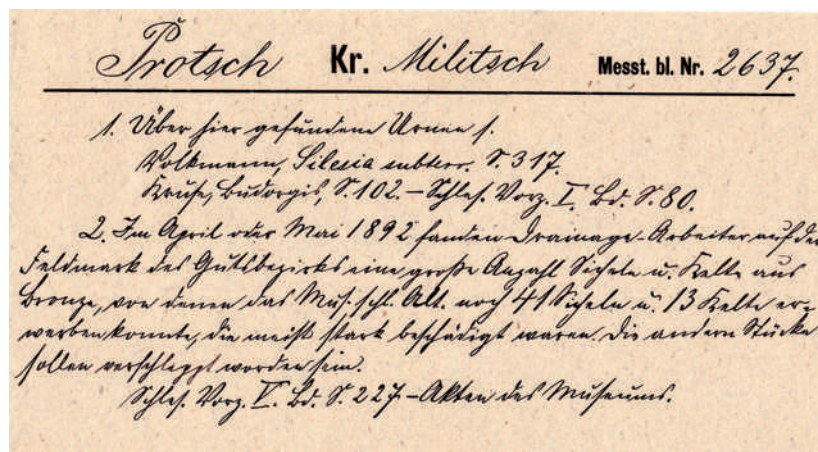 Protsch Kr. Militsch Messt. bl. Nr. 2637.
1. Über hier gefundene Urnen s.
Volkmann, Silesia subterr. S. 317.
Kruse, Budorgis, S. 102. – Schles. Vorz. I. Bd. S. 80.
2. Im April oder Mai 1892 fanden Drainage-Arbeiter auf der
Feldmark des Gutsbezirks eine große Anzahl Sicheln u. Kelte aus
Bronze, von denen das Mus. schl. Alt. noch 41 Sicheln u. 13 Kelte er-
werben konnte, die meist stark beschädigt waren. Die andern Stücke
sollen verschleppt worden sein.
Schles. Vorz. V. Bd. S. 227 – Akten des Museums.